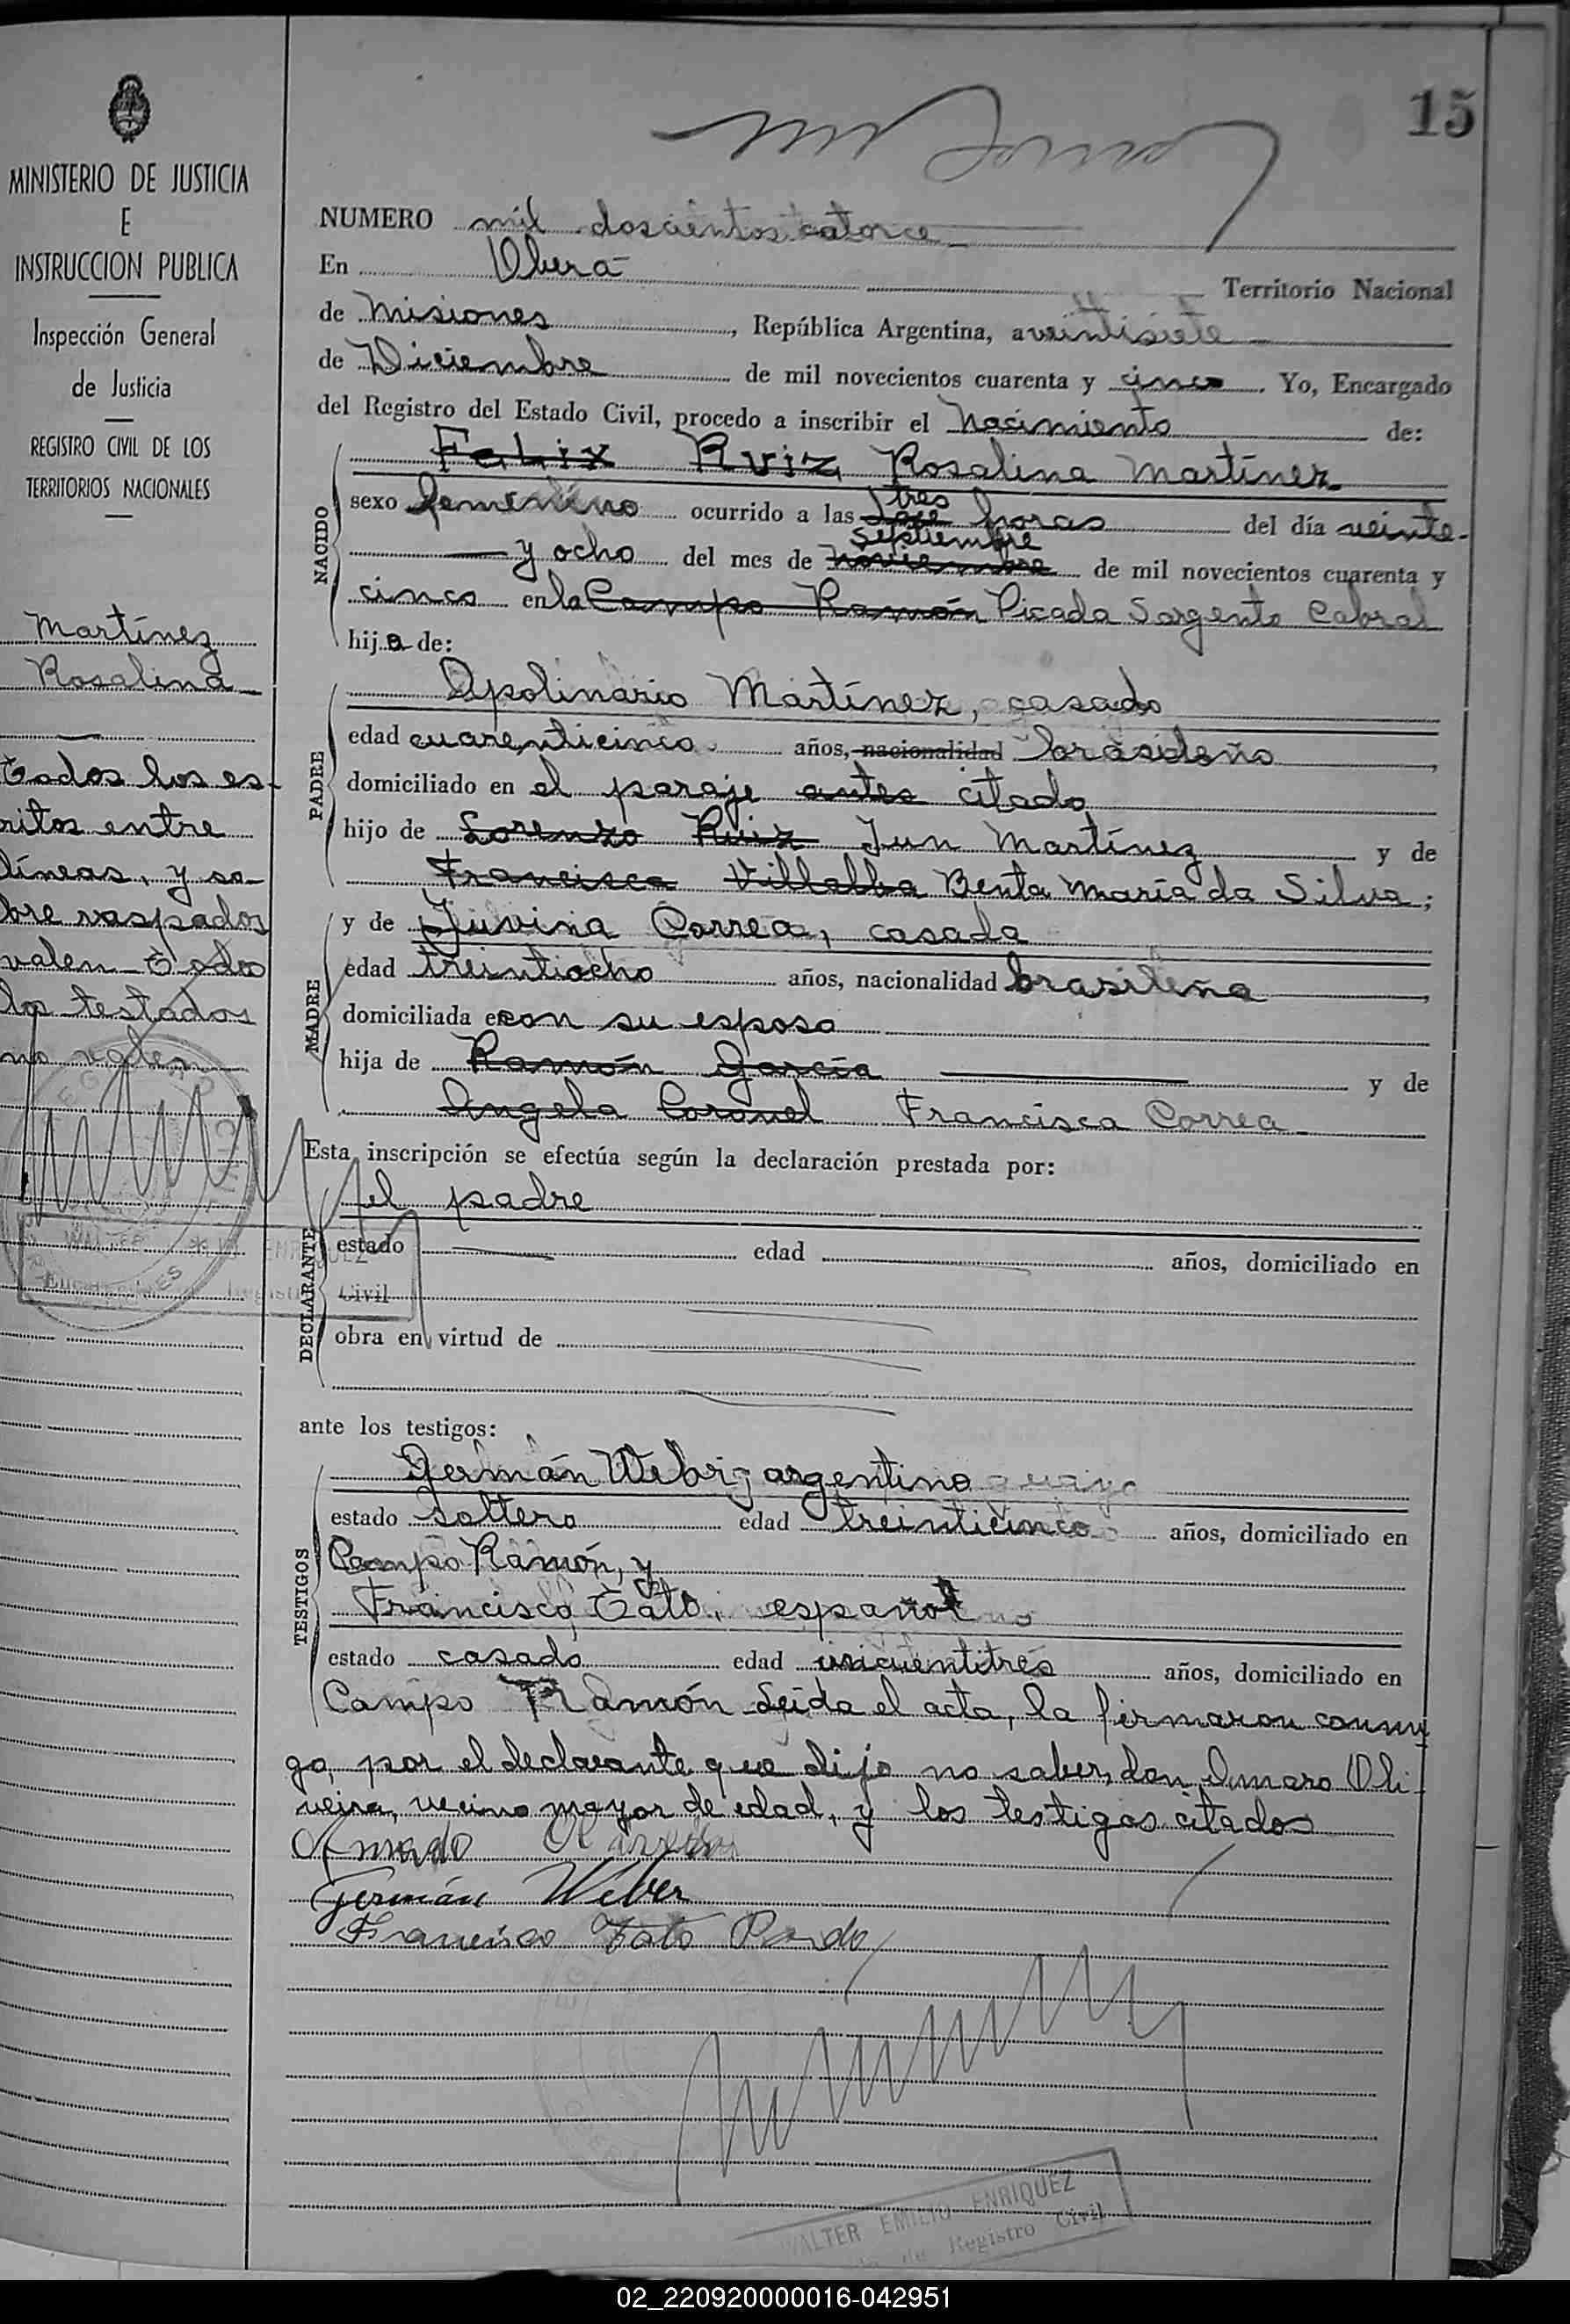 15
MINISTERIO DE JUSTICIA
E
INSTRUCCION PUBLICA
Inspección General
de Justicia
REGISTRO CIVIL DE LOS
TERRITORIOS NACIONALES
Martínez
Rosalina
Todos los es-
ritos entre
líneas, y so-
bre raspados
valen Todo
los testados
no valen
NUMERO mil doscientos catorce
En Oberá Territorio Nacional
de Misiones, República Argentina, a veintisiete
de Diciembre de mil novecientos cuarenta y cinco. Yo, Encargado
del Registro del Estado Civil, procedo a inscribir el Nacimiento de:
NACIDO
Felix Ruiz Rosalina Martínez
sexo femenino ocurrido a las tres horas del día veinte-
y ocho del mes de noviembre septiembre de mil novecientos cuarenta y
cinco en la Campo Ramón Picada Sargento Cabral
hija de:
PADRE
Apolinario Martínez, casado
edad cuarenticinco años, nacionalidad brasileño
domiciliado en el paraje antes citado
hijo de Lorenzo Ruiz Jun Martínez y de
Francisca Villalba Benta María da Silva;
MADRE
y de Juvina Correa, casada
edad treintiocho años, nacionalidad brasileña
domiciliada en con su esposo
hija de Ramón García y de
Angela Coronel Francisca Correa
Esta inscripción se efectúa según la declaración prestada por:
DECLARANTE
el padre
estado edad años, domiciliado en
obra en virtud de
ante los testigos:
TESTIGOS
Germán Weber; argentino
estado soltero edad treinticinco años, domiciliado en
Campo Ramón, y
Francisco Tato, español
estado casado edad cincuentitrés años, domiciliado en
Campo Ramón Leida el acta, la firmaron conmi
go, por el declarante que dijo no saber, don Amaro Oli-
veira, vecino mayor de edad, y los testigos citados
Germán Weber
Francisco Tato Pardo
WALTER EMILIO ENRIQUEZ
de Registro Civil
02_220920000016-042951